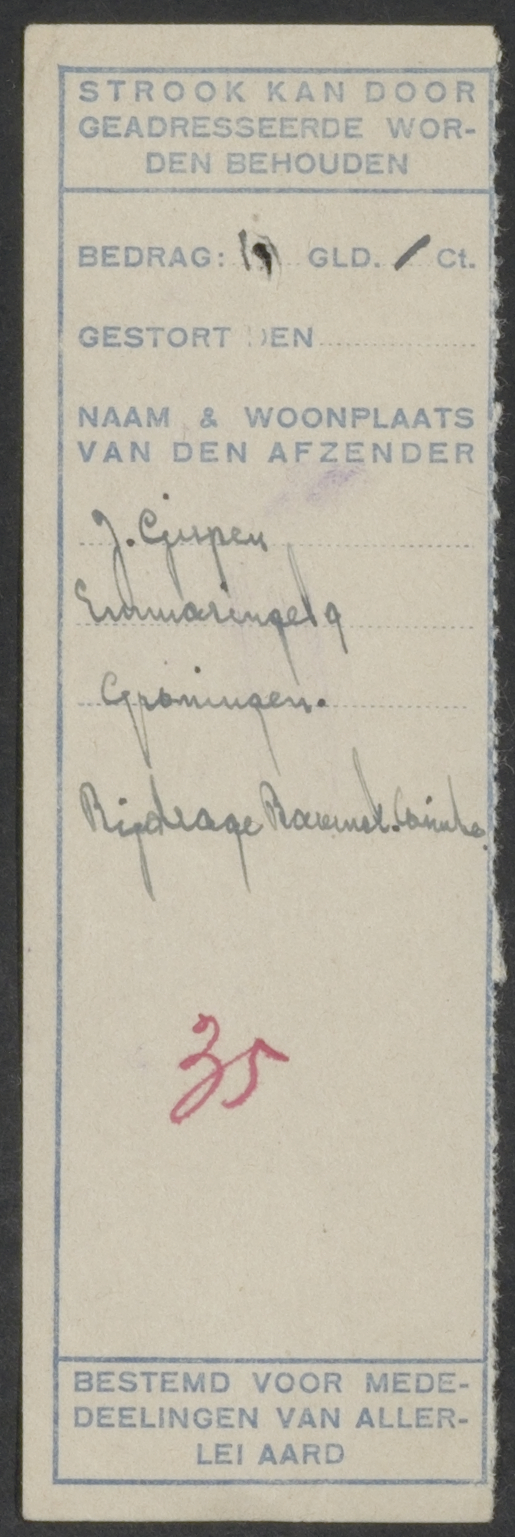 STROOK KAN DOOR
GEADRESSEERDE WOR-
DEN BEHOUDEN
BEDRAG: GLD. / Ct.
GESTORT DEN
NAAM & WOONPLAATS
VAN DEN AFZENDER
J. Gispen
Emmasingel 9
Groningen.
Bijdrage
35
BESTEMD VOOR MEDE-
DEELINGEN VAN ALLER-
LEI AARD